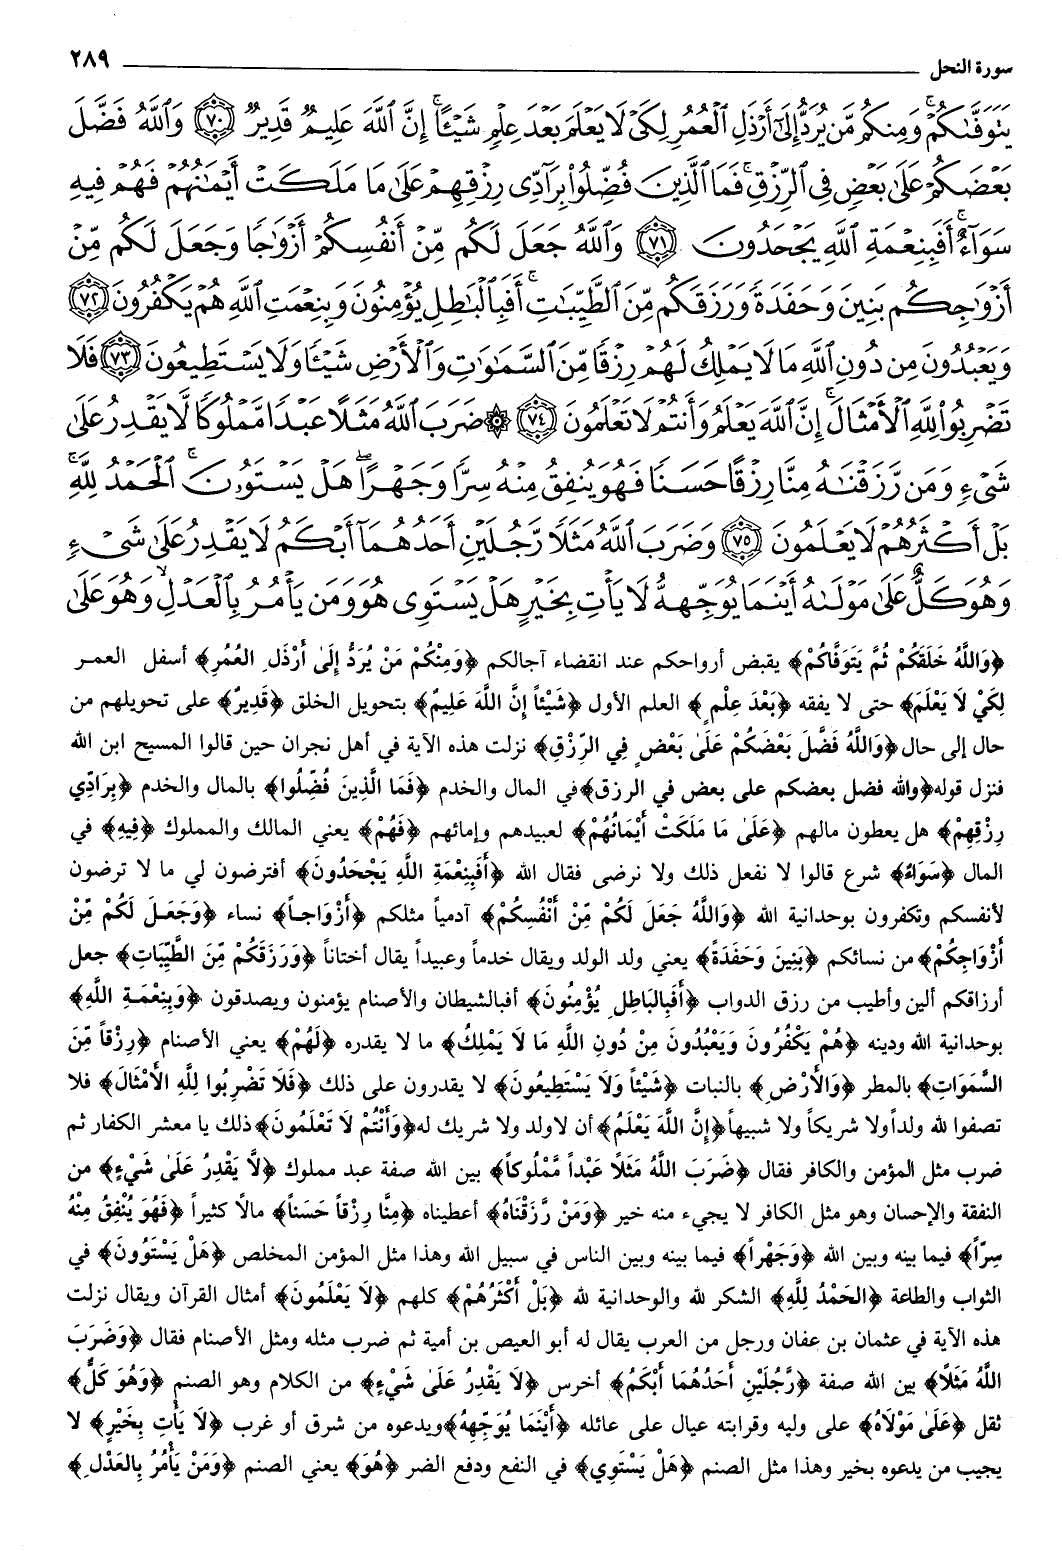 سورة النحل ٢٨٩
يَتَوَفَّىٰكُمْ ۚ وَمِنكُم مَّن يُرَدُّ إِلَىٰٓ أَرْذَلِ ٱلْعُمُرِ لِكَىْ لَا يَعْلَمَ بَعْدَ عِلْمٍ شَيْـًٔا ۚ إِنَّ ٱللَّهَ عَلِيمٌ قَدِيرٌ ٧٠ وَٱللَّهُ فَضَّلَ
بَعْضَكُمْ عَلَىٰ بَعْضٍ فِى ٱلرِّزْقِ ۚ فَمَا ٱلَّذِينَ فُضِّلُوا۟ بِرَآدِّى رِزْقِهِمْ عَلَىٰ مَا مَلَكَتْ أَيْمَـٰنُهُمْ فَهُمْ فِيهِ
سَوَآءٌ ۚ أَفَبِنِعْمَةِ ٱللَّهِ يَجْحَدُونَ ٧١ وَٱللَّهُ جَعَلَ لَكُم مِّنْ أَنفُسِكُمْ أَزْوَٰجًا وَجَعَلَ لَكُم مِّنْ
أَزْوَٰجِكُم بَنِينَ وَحَفَدَةً وَرَزَقَكُم مِّنَ ٱلطَّيِّبَـٰتِ ۚ أَفَبِٱلْبَـٰطِلِ يُؤْمِنُونَ وَبِنِعْمَتِ ٱللَّهِ هُمْ يَكْفُرُونَ ٧٢
وَيَعْبُدُونَ مِن دُونِ ٱللَّهِ مَا لَا يَمْلِكُ لَهُمْ رِزْقًا مِّنَ ٱلسَّمَـٰوَٰتِ وَٱلْأَرْضِ شَيْـًٔا وَلَا يَسْتَطِيعُونَ ٧٣ فَلَا
تَضْرِبُوا۟ لِلَّهِ ٱلْأَمْثَالَ ۚ إِنَّ ٱللَّهَ يَعْلَمُ وَأَنتُمْ لَا تَعْلَمُونَ ٧٤ ۞ ضَرَبَ ٱللَّهُ مَثَلًا عَبْدًا مَّمْلُوكًا لَّا يَقْدِرُ عَلَىٰ
شَىْءٍ وَمَن رَّزَقْنَـٰهُ مِنَّا رِزْقًا حَسَنًا فَهُوَ يُنفِقُ مِنْهُ سِرًّا وَجَهْرًا ۖ هَلْ يَسْتَوُۥنَ ۚ ٱلْحَمْدُ لِلَّهِ ۚ
بَلْ أَكْثَرُهُمْ لَا يَعْلَمُونَ ٧٥ وَضَرَبَ ٱللَّهُ مَثَلًا رَّجُلَيْنِ أَحَدُهُمَآ أَبْكَمُ لَا يَقْدِرُ عَلَىٰ شَىْءٍ
وَهُوَ كَلٌّ عَلَىٰ مَوْلَىٰهُ أَيْنَمَا يُوَجِّههُّ لَا يَأْتِ بِخَيْرٍ هَلْ يَسْتَوِى هُوَ وَمَن يَأْمُرُ بِٱلْعَدْلِ ۙ وَهُوَ عَلَىٰ
﴿وَاللَّهُ خَلَقَكُمْ ثُمَّ يَتَوَفَّاكُمْ﴾ يقبض أرواحكم عند انقضاء آجالكم ﴿وَمِنْكُمْ مَنْ يُرَدُّ إِلَىٰ أَرْذَلِ العُمُرِ﴾ أسفل العمر
لِكَيْ لَا يَعْلَمَ﴾ حتى لا يفقه ﴿بَعْدَ عِلْمٍ﴾ العلم الأول ﴿شَيْئاً إِنَّ اللَّهَ عَلِيمٌ﴾ بتحويل الخلق ﴿قَدِيرٌ﴾ على تحويلهم من
حال إلى حال﴿وَاللَّهُ فَضَّلَ بَعْضَكُمْ عَلَىٰ بَعْضٍ فِي الرِّزْقِ﴾ نزلت هذه الآية في أهل نجران حين قالوا المسيح ابن الله
فنزل قوله﴿والله فضل بعضكم على بعض في الرزق﴾في المال والخدم ﴿فَمَا الَّذِينَ فُضِّلُوا﴾ بالمال والخدم ﴿بِرَادِّي
رِزْقِهِمْ﴾ هل يعطون مالهم ﴿عَلَىٰ مَا مَلَكَتْ أَيْمَانُهُمْ﴾ لعبيدهم وإمائهم ﴿فَهُمْ﴾ يعني المالك والمملوك ﴿فِيهِ﴾ في
المال ﴿سَوَاءٌ﴾ شرع قالوا لا نفعل ذلك ولا نرضى فقال الله ﴿أَفَبِنِعْمَةِ اللَّهِ يَجْحَدُونَ﴾ أفترضون لي ما لا ترضون
لأنفسكم وتكفرون بوحدانية الله ﴿وَاللَّهُ جَعَلَ لَكُمْ مِّنْ أَنْفُسِكُمْ﴾ آدمياً مثلكم ﴿أَزْوَاجاً﴾ نساء ﴿وَجَعَلَ لَكُمْ مِّنْ
أَزْوَاجِكُمْ﴾من نسائكم ﴿بَنِينَ وَحَفَدَةً﴾ يعني ولد الولد ويقال خدماً وعبيداً يقال أختاناً ﴿وَرَزَقَكُمْ مِّنَ الطَّيِّبَاتِ﴾ جعل
أرزاقكم ألين وأطيب من رزق الدواب ﴿أَفَبِالبَاطِلِ يُؤْمِنُونَ﴾ أفبالشيطان والأصنام يؤمنون ويصدقون ﴿وَبِنِعْمَةِ اللَّهِ﴾
بوحدانية الله ودينه ﴿هُمْ يَكْفُرُونَ وَيَعْبُدُونَ مِنْ دُونِ اللَّهِ مَا لَا يَمْلِكُ﴾ ما لا يقدره ﴿لَهُمْ﴾ يعني الأصنام ﴿رِزْقاً مِّنَ
السَّمَوَاتِ﴾ بالمطر ﴿وَالأَرْضِ﴾ بالنبات ﴿شَيْئاً وَلَا يَسْتَطِيعُونَ﴾ لا يقدرون على ذلك ﴿فَلَا تَضْرِبُوا لِلَّهِ الأَمْثَالَ﴾ فلا
تصفوا لله ولداً ولا شريكاً ولا شبيهاً﴿إِنَّ اللَّهَ يَعْلَمُ﴾أن لاولد ولا شريك له﴿وَأَنْتُمْ لَا تَعْلَمُونَ﴾ذلك يا معشر الكفار ثم
ضرب مثل المؤمن والكافر فقال ﴿ضَرَبَ اللَّهُ مَثَلاً عَبْداً مَّمْلُوكاً﴾ بين الله صفة عبد مملوك ﴿لَّا يَقْدِرُ عَلَىٰ شَيْءٍ﴾ من
النفقة والإحسان وهو مثل الكافر لا يجيء منه خير ﴿وَمَنْ رَّزَقْنَاهُ﴾ أعطيناه ﴿مِنَّا رِزْقاً حَسَناً﴾ مالاً كثيراً ﴿فَهُوَ يُنْفِقُ مِنْهُ
سِرّاً﴾ فيما بينه وبين الله ﴿وَجَهْراً﴾ فيما بينه وبين الناس في سبيل الله وهذا مثل المؤمن المخلص ﴿هَلْ يَسْتَوُونَ﴾ في
الثواب والطاعة ﴿الحَمْدُ لِلَّهِ﴾ الشكر لله والوحدانية لله ﴿بَلْ أَكْثَرُهُمْ﴾ كلهم ﴿لَا يَعْلَمُونَ﴾ أمثال القرآن ويقال نزلت
هذه الآية في عثمان بن عفان ورجل من العرب يقال له أبو العيص بن أمية ثم ضرب مثله ومثل الأصنام فقال ﴿وَضَرَبَ
اللَّهُ مَثَلاً﴾ بين الله صفة ﴿رَّجُلَيْنِ أَحَدُهُمَا أَبْكَمُ﴾ أخرس ﴿لَا يَقْدِرُ عَلَىٰ شَيْءٍ﴾ من الكلام وهو الصنم ﴿وَهُوَ كَلٌّ﴾
ثقل ﴿عَلَىٰ مَوْلَاهُ﴾ على وليه وقرابته عيال على عائله ﴿أَيْنَمَا يُوَجِّهِهُ﴾ويدعوه من شرق أو غرب ﴿لَا يَأْتِ بِخَيْرٍ﴾ لا
يجيب من يدعوه بخير وهذا مثل الصنم ﴿هَلْ يَسْتَوِي﴾ في النفع ودفع الضر ﴿هُوَ﴾ يعني الصنم ﴿وَمَنْ يَأْمُرُ بِالعَدْلِ﴾